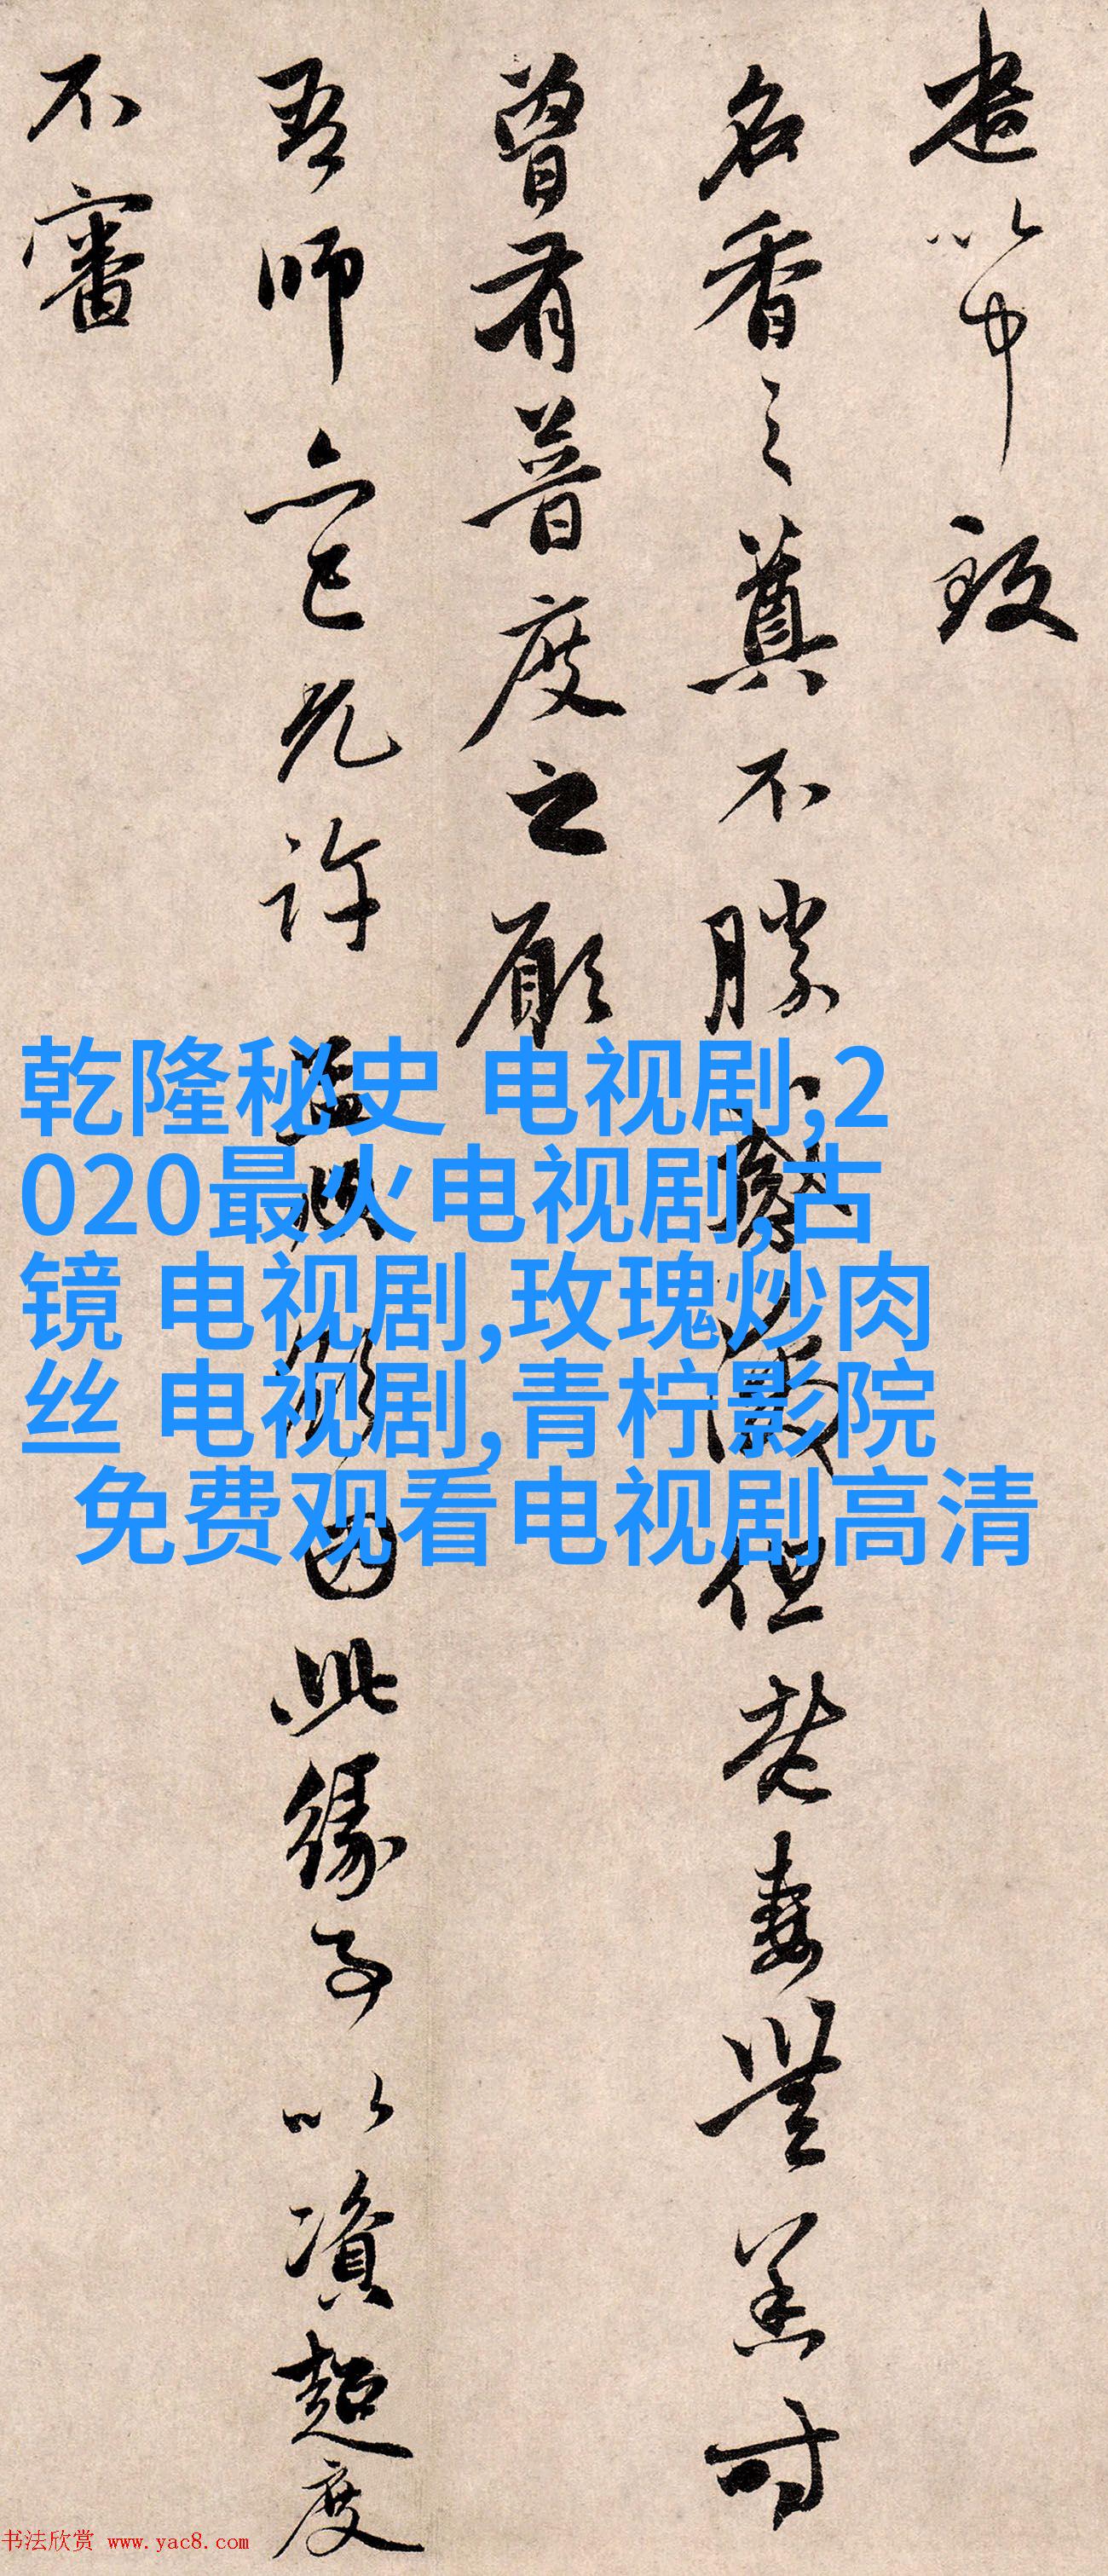 遣以中致
名香之奠不勝 但 妻 時
曾有普度之願
吾師亦已允許 因此緣事以資超度
不審
乾隆秘史 电视剧,2
020最火电视剧,古
镜 电视剧,玫瑰炒肉
丝 电视剧,青柠影院
免费观看电视剧高清
书法欣赏 www.yac8.com